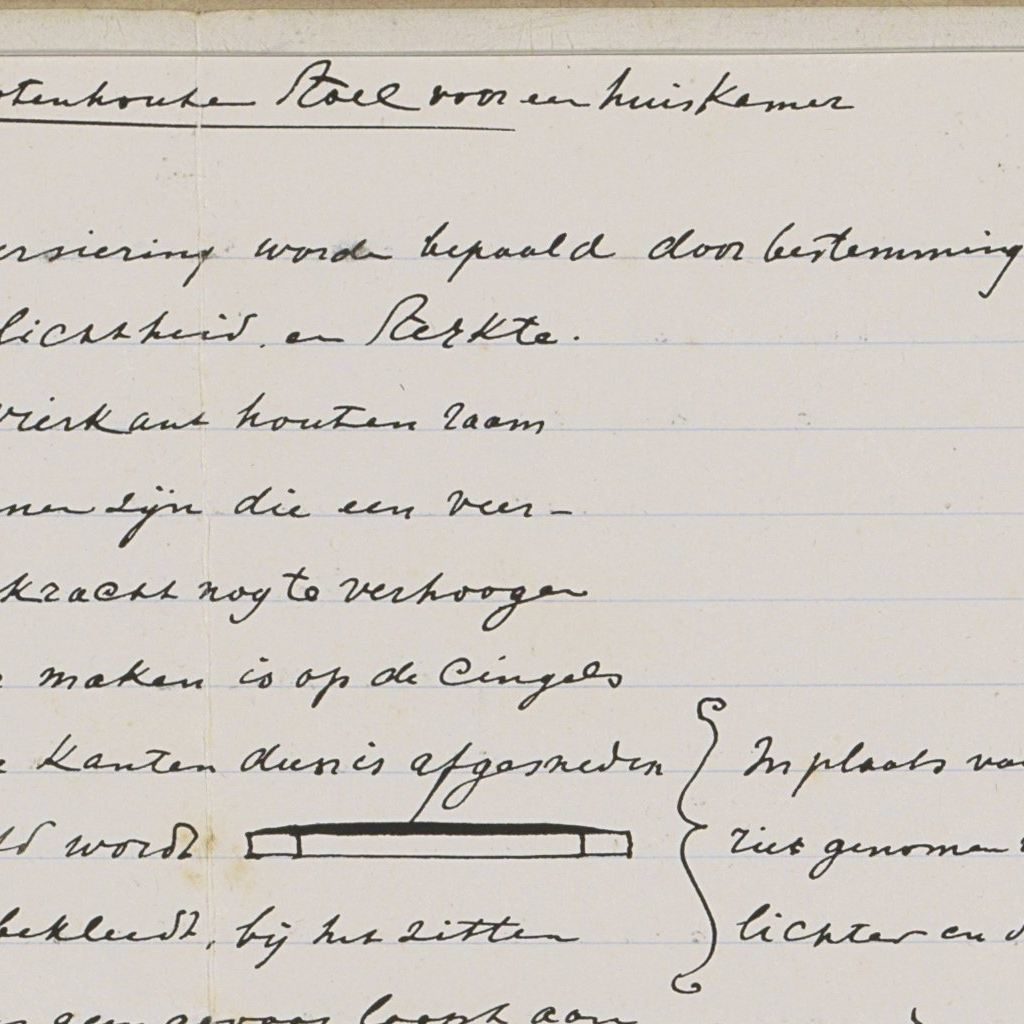 otenhouten Stoel voor een huiskamer
ersiering worden bepaald door bestemming
lichtheid, en Sterkte.
vierkant houten raam
nen zijn die een veer-
kracht nog te verhoogen
maken is op de Cingels
e Kanten dun is afgesneden
wordt
bekleedt, bij het zitten
loopt aan
In plaats van
riet genomen
lichter en d